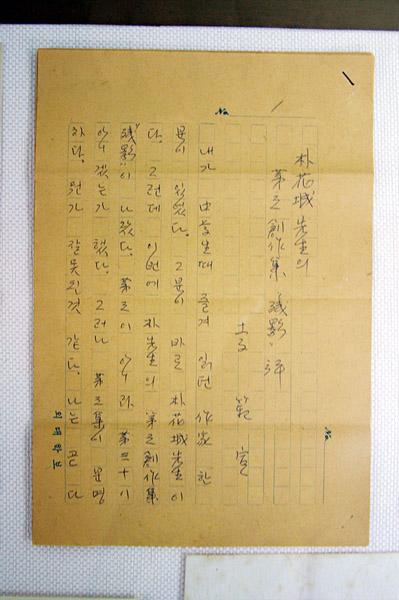 No.
No.
朴花城 先生의
第三創作集 「殘影」 評
範 宣
내가 中学生때 즐겨 읽던 作家 한
분이 있었다. 그분이 바로 朴花城先生이
다. 그런데 이번에 朴先生의 第三創作集
「殘影」이 나왔다. 第三이 아니라 第三十이
아니겠는가 했다. 그러나 第三集이 분명
하다. 뭔가 잘못된것 같다. 나는 곧 다
의대학보